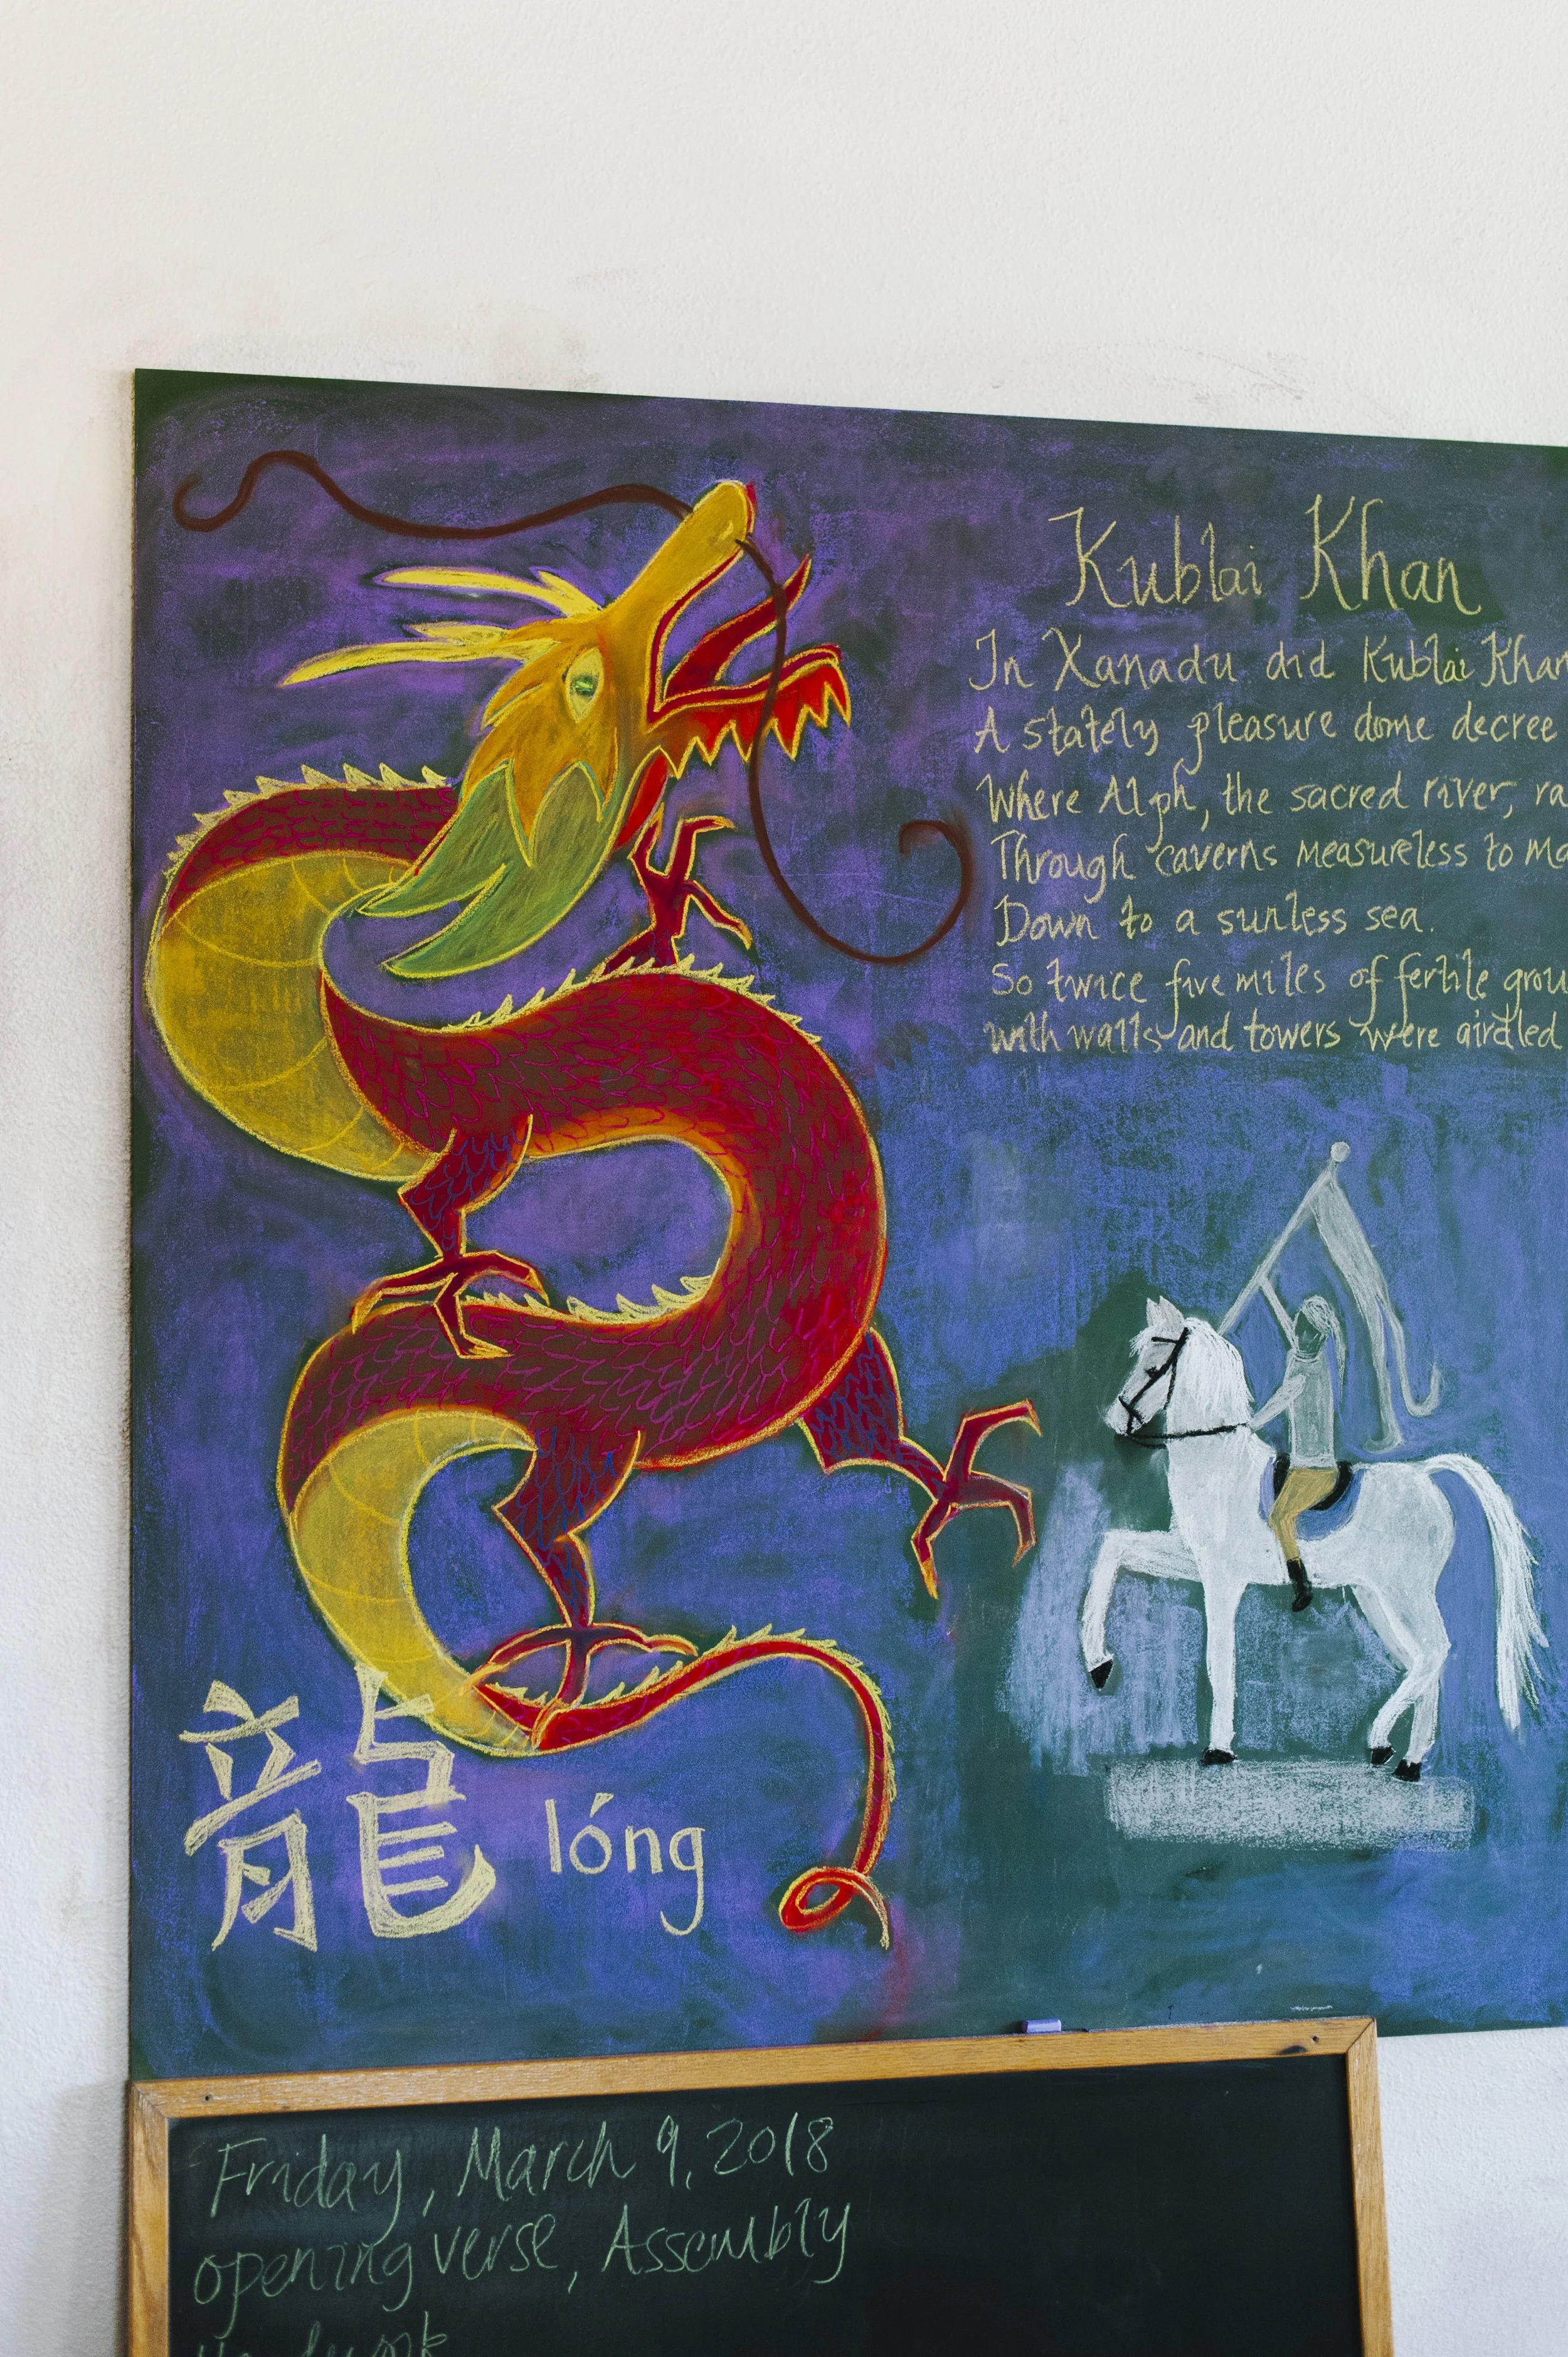 Kublai Khan
In Xanadu did Kublai Khan
A stately pleasure dome decree
Where Alph, the sacred river, ra
Through caverns measureless to Ma
Down to a sunless sea.
So twice five miles of fertile grou
with walls and towers were girdled
龍 lóng
Friday, March 9, 2018
opening verse, Assembly